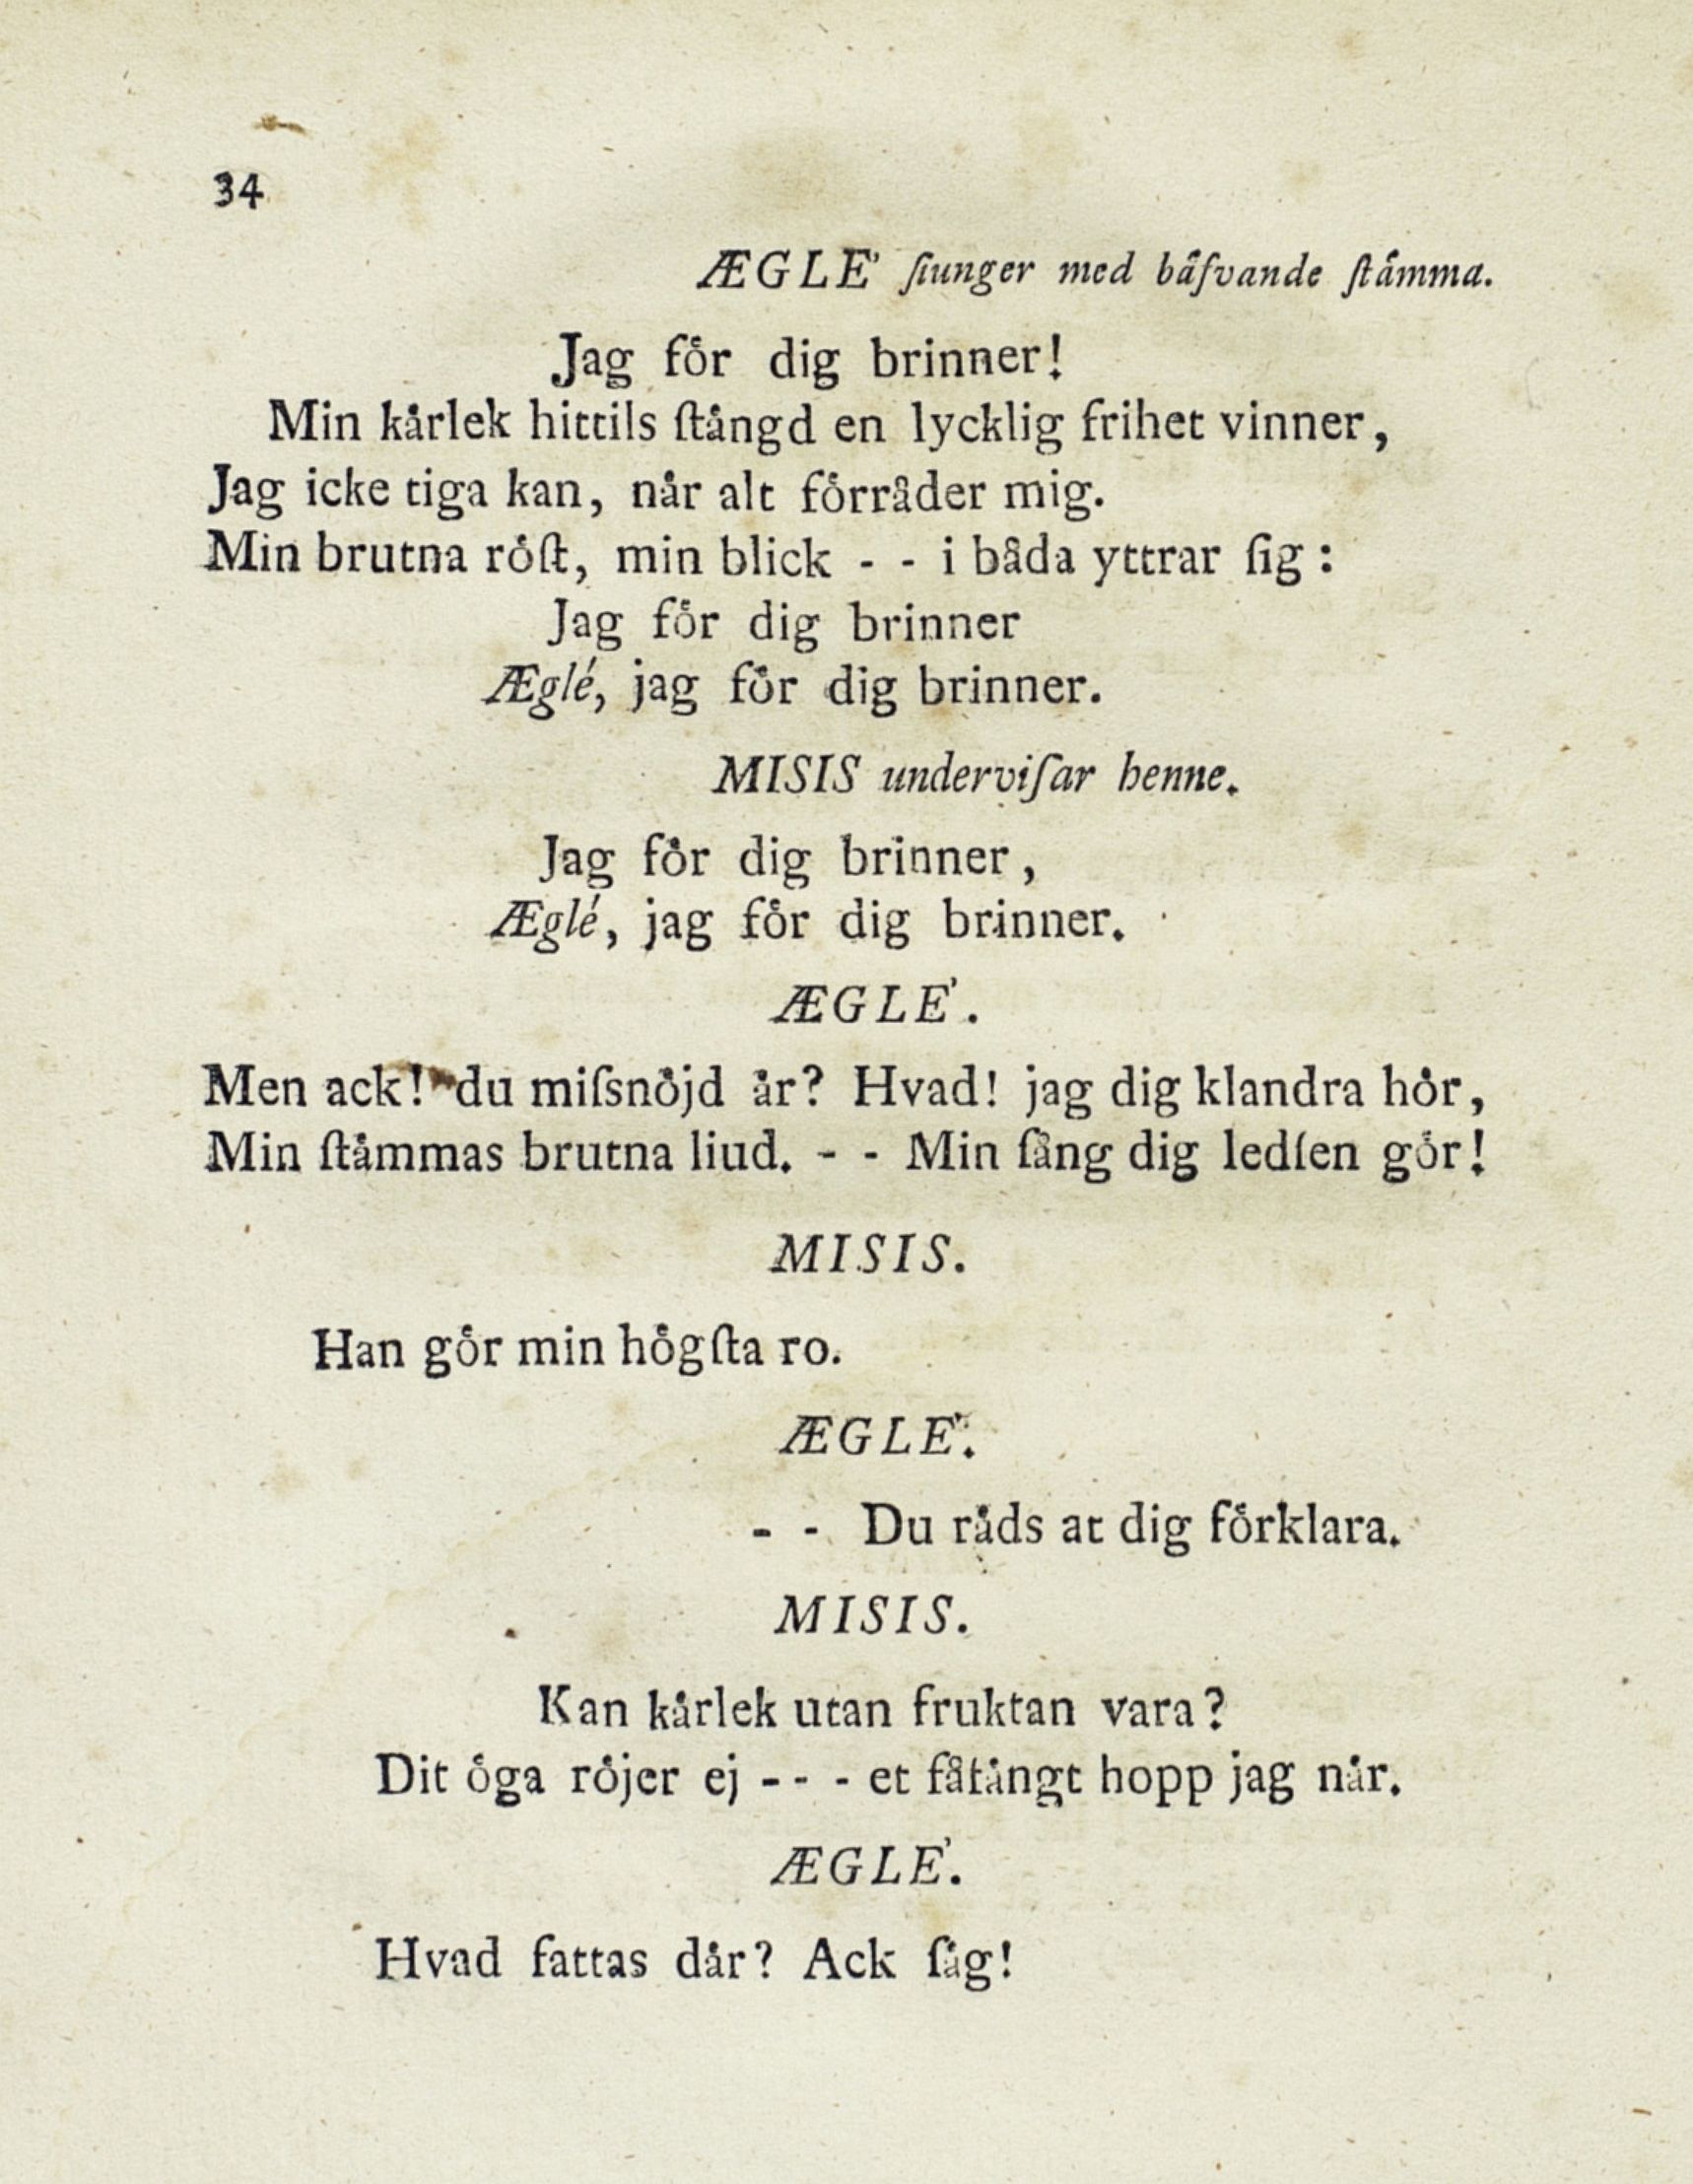 34
ÆGLE' ſiunger med båfvande ſtåmma.
Jag fôr dig brinner!
Min kårlek hittils ſtångd en lycklig frihet vinner,
Jag icke tiga kan, når alt fôrråder mig.
Min brutna rôſt, min blick - - i båda yttrar ſig:
Jag fôr dig brinner
Æglé, jag fôr dig brinner.
MISIS underviſar henne.
Jag fôr dig brinner,
Æglé, jag fôr dig brinner.
ÆGLE'.
Men ack! du miſsnôjd år? Hvad! jag dig klandra hôr,
Min ſtåmmas brutna liud. - - Min ſång dig ledſen gôr!
MISIS.
Han gôr min hôgſta ro.
ÆGLE'.
- - Du råds at dig fôrklara.
MISIS.
Kan kårlek utan fruktan vara?
Dit ôga rôjer ej - - - et fåfångt hopp jag når.
ÆGLE'.
Hvad fattas dår? Ack ſåg!